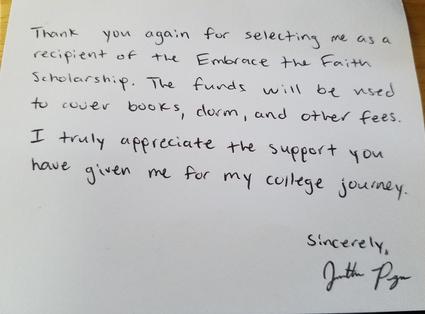 Thank you again for selecting me as a
recipient of the Embrace the Faith
Scholarship. The funds will be used
to cover books, dorm, and other fees.
I truly appreciate the support you
have given me for my college journey.
Sincerely,